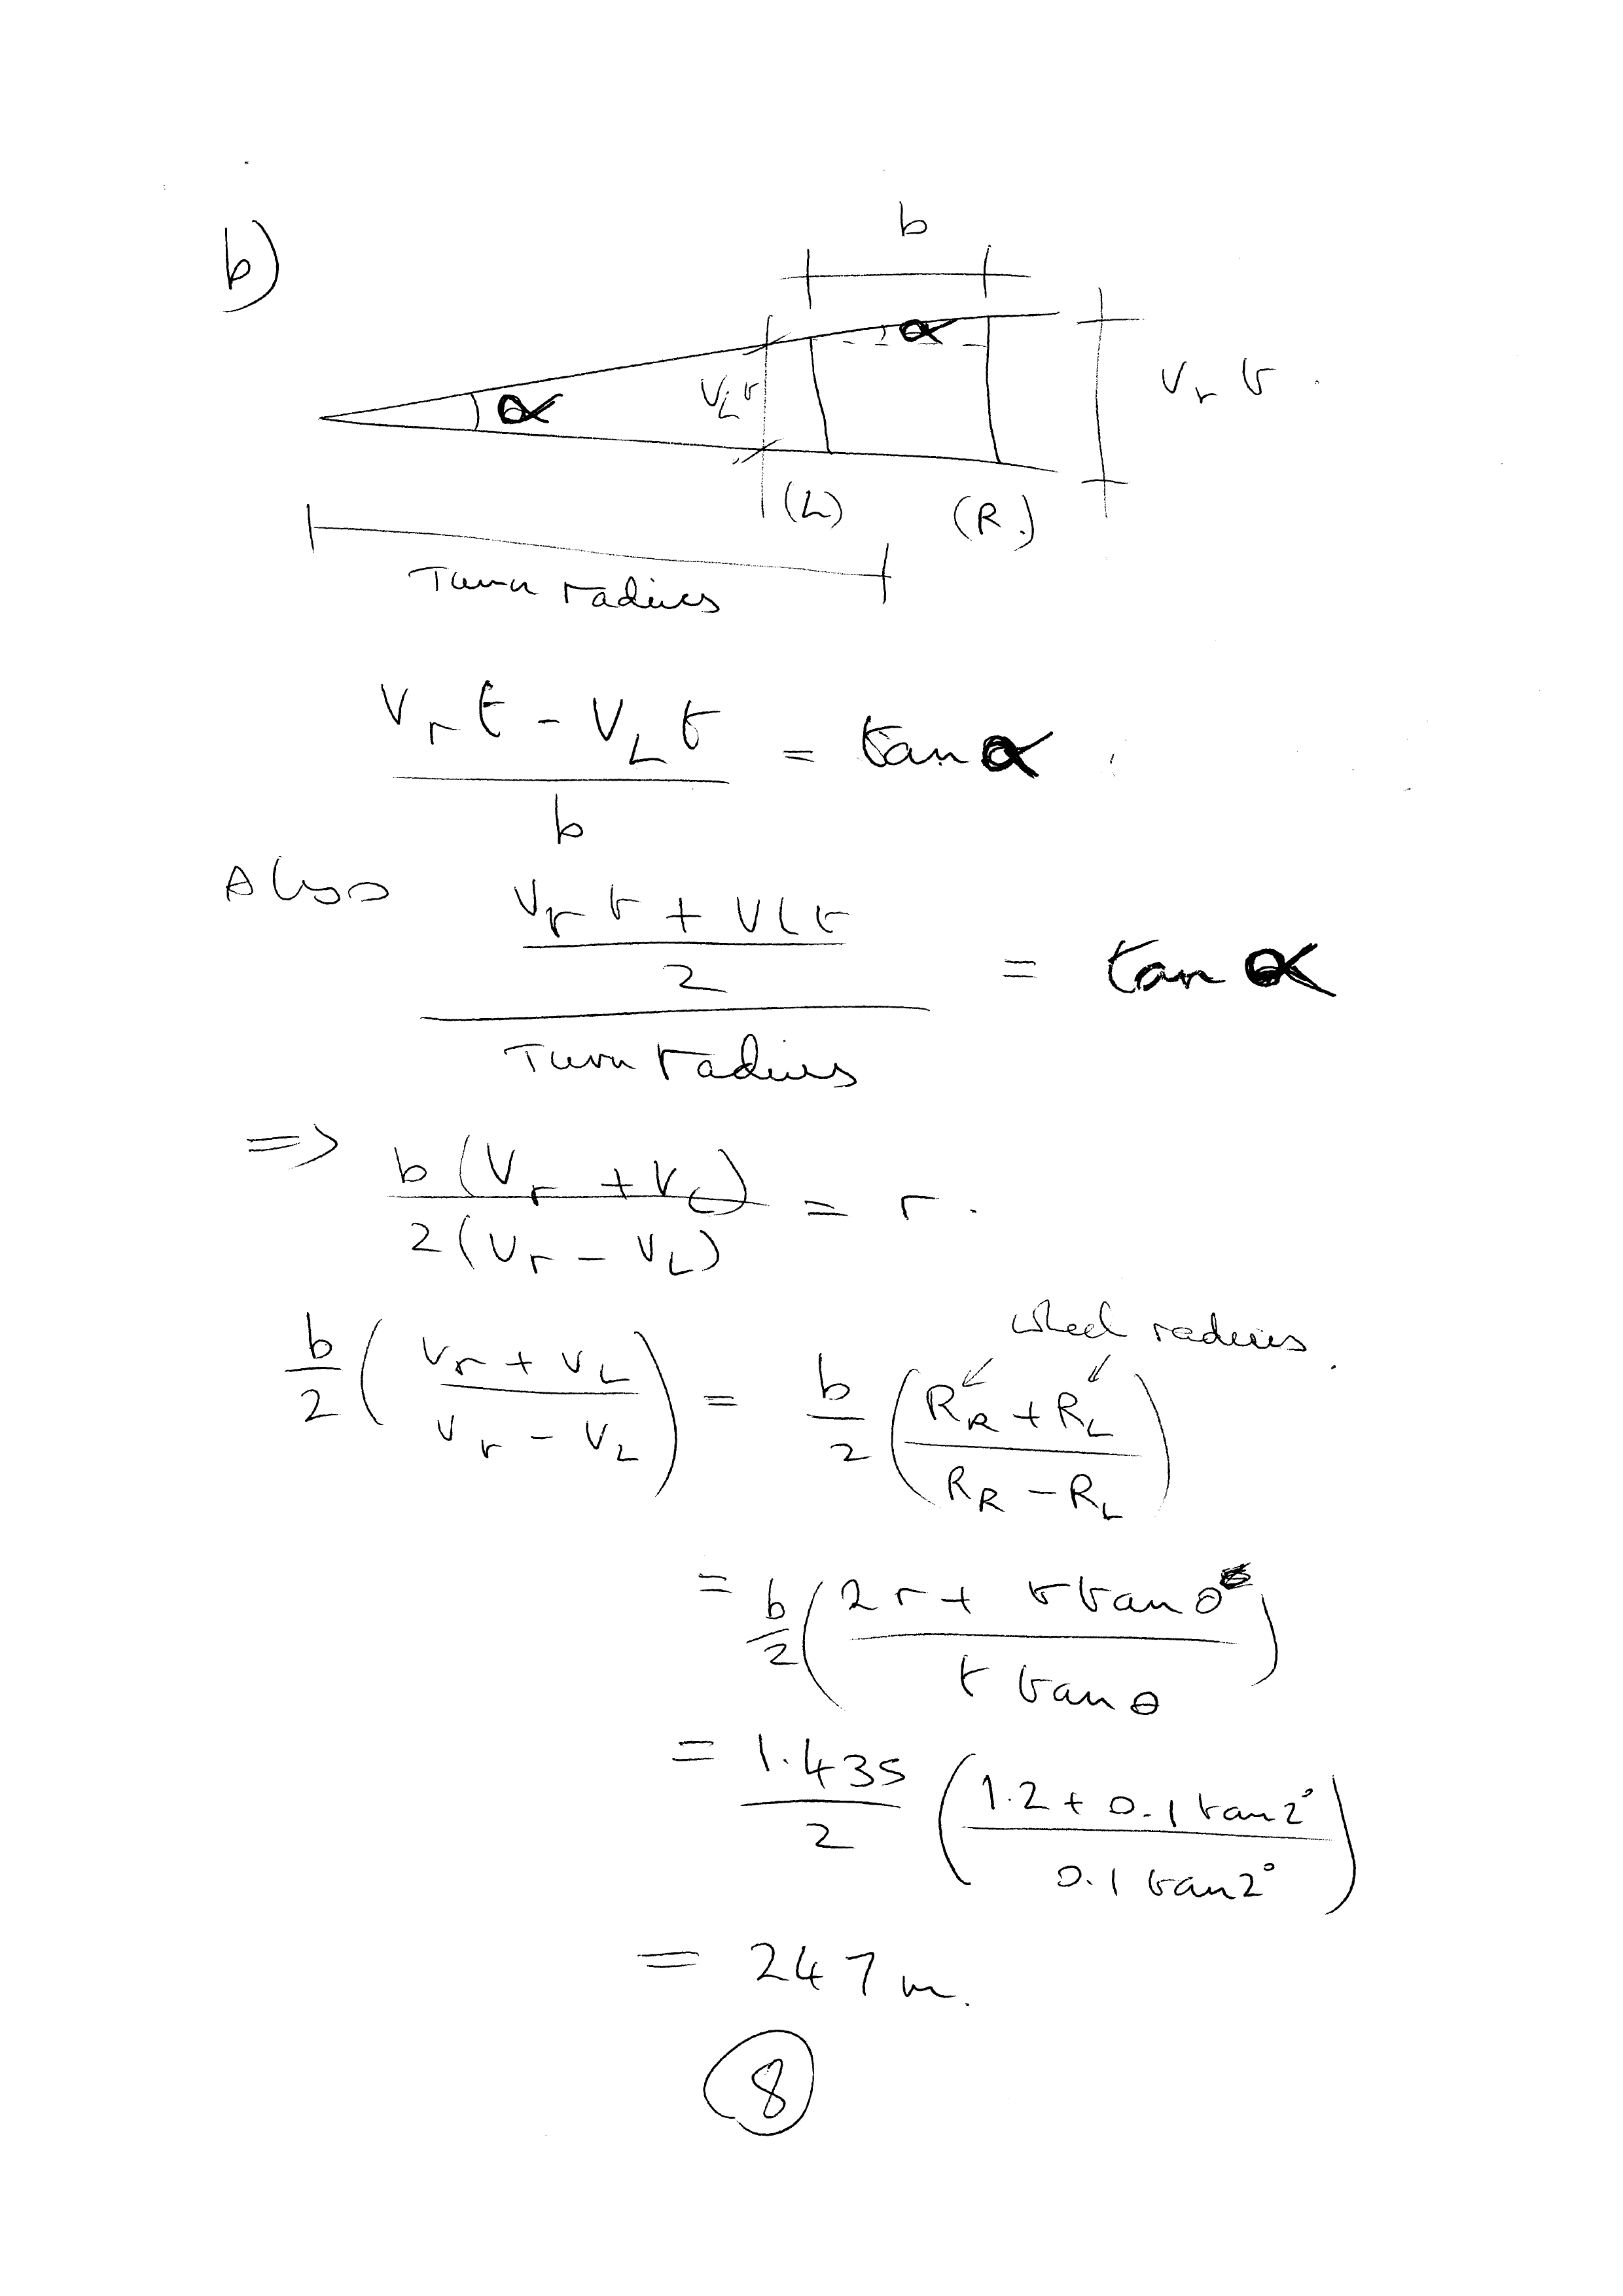 b)
b
α
α
V_L t
V_r t .
(L)
(R.)
Turn radius
(V_r t - V_L t) / b = tan α
Also ((V_r t + V_L t) / 2) / Turn radius = tan α
=> b (V_r + V_L) / 2 (V_r - V_L) = r .
wheel radius .
b/2 ( (V_r + V_L) / (V_r - V_L) ) = b/2 ( (R_R + R_L) / (R_R - R_L) )
= b/2 ( (2r + t tan θ) / (t tan θ) )
= 1.435/2 ( (1.2 + 0.1 tan 2°) / (0.1 tan 2°) )
= 247 m.
8